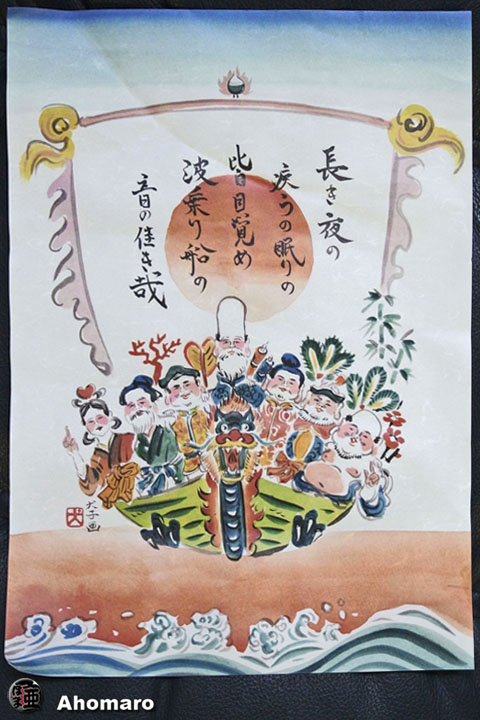 長き夜の
疾うの眠りの
皆目覚め
波乗り船の
音の佳き哉
犬子画
犬
Ahomaro